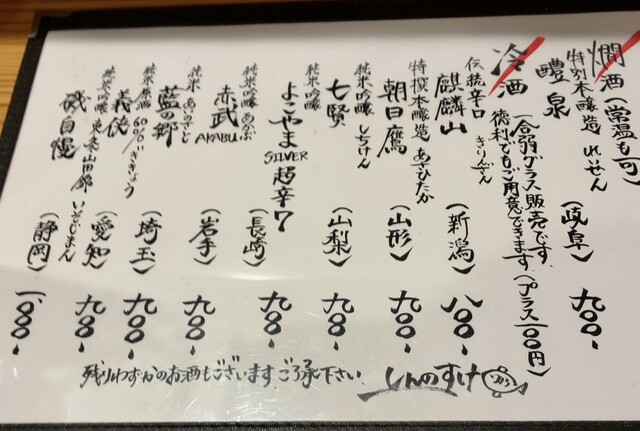 燗酒(常温も可)
特別本醸造 れいせん
醴泉 (岐阜) 九〇〇-
冷酒 (一合弱グラス販売です。
徳利でもご用意できます(プラス一〇〇円)
伝統辛口 きりんざん
麒麟山 (新潟) 八〇〇-
特撰本醸造 あさひたか
朝日鷹 (山形) 九〇〇-
純米吟醸 しちけん
七賢 (山梨) 九〇〇-
純米吟醸
よこやま SILVER 超辛7 (長崎) 九〇〇-
純米吟醸 あかぶ
赤武 AKABU (岩手) 九〇〇-
純米 あいのさと
藍の郷 (埼玉) 九〇〇-
純米原酒 60% ぎきょう
義侠 (愛知) 九〇〇-
東条山田錦 いそじまん
磯自慢 (静岡) 一、〇〇〇-
残りわずかのお酒もございます。ご了承下さい。
しんのすけ